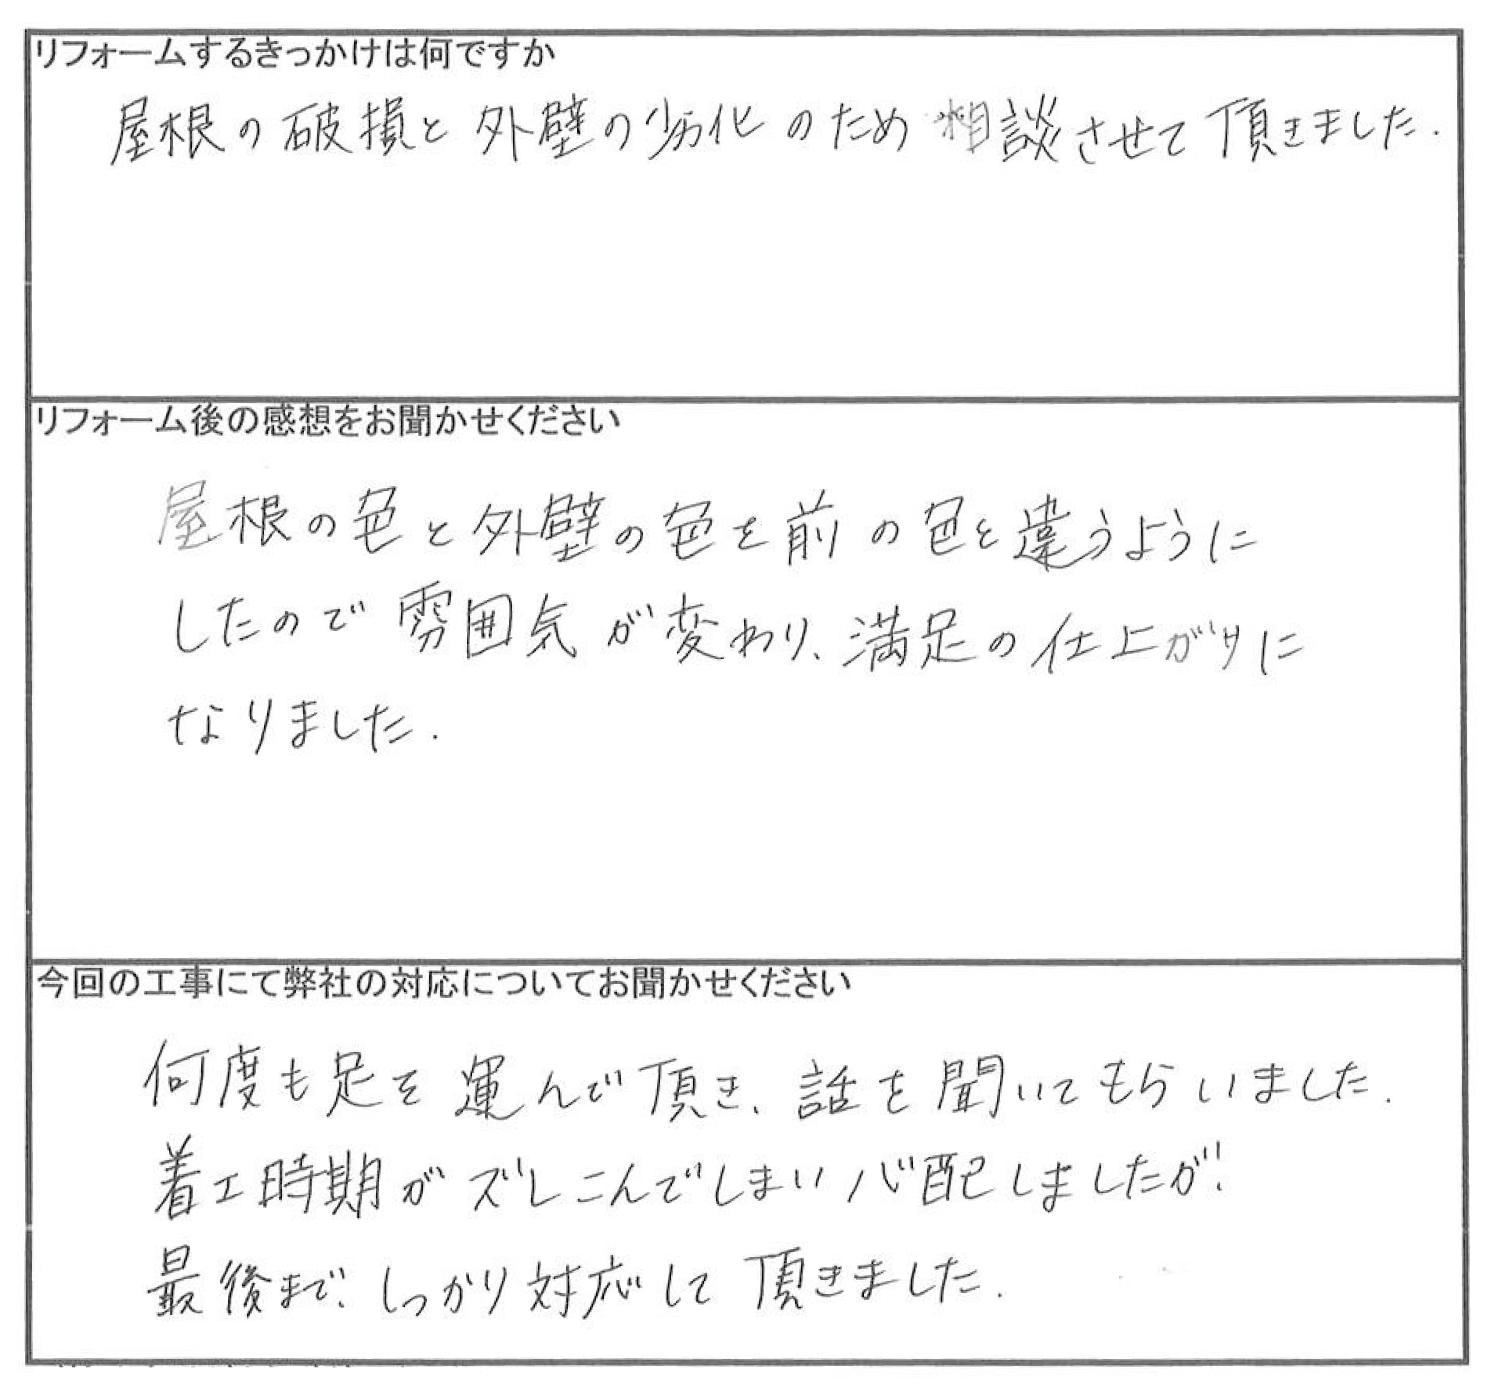 リフォームするきっかけは何ですか
屋根の破損と外壁の劣化のため相談させて頂きました.
リフォーム後の感想をお聞かせください
屋根の色と外壁の色を前の色と違うように
したので雰囲気が変わり、満足の仕上がりに
なりました.
今回の工事にて弊社の対応についてお聞かせください
何度も足を運んで頂き、話を聞いてもらいました.
着工時期がズレこんでしまい心配しましたが、
最後まで、しっかり対応して頂きました.